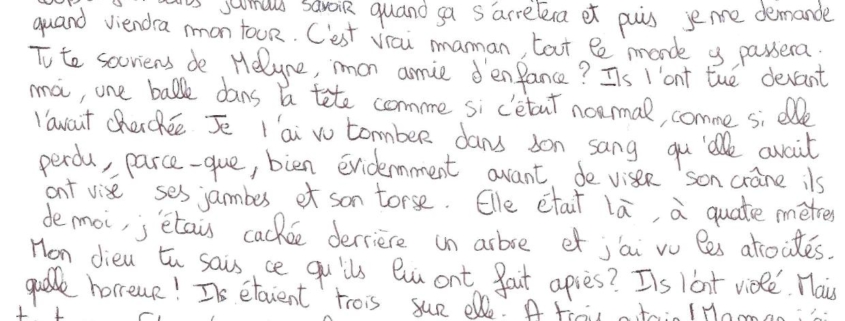 jamais savoir quand ça s'arrêtera et puis je me demande
quand viendra mon tour. C'est vrai maman, tout le monde y passera.
Tu te souviens de Mélyne, mon amie d'enfance ? Ils l'ont tué devant
moi, une balle dans la tête comme si c'était normal, comme si elle
l'avait cherchée. Je l'ai vu tomber dans son sang qu'elle avait
perdu, parce-que, bien évidemment avant de viser son crâne ils
ont visé ses jambes et son torse. Elle était là, à quatre mètres
de moi, j'étais cachée derrière un arbre et j'ai vu les atrocités.
Mon dieu tu sais ce qu'ils lui ont fait après ? Ils l'ont violé. Mais
quelle horreur ! Ils étaient trois sur elle. A trois putain ! Maman j'ai